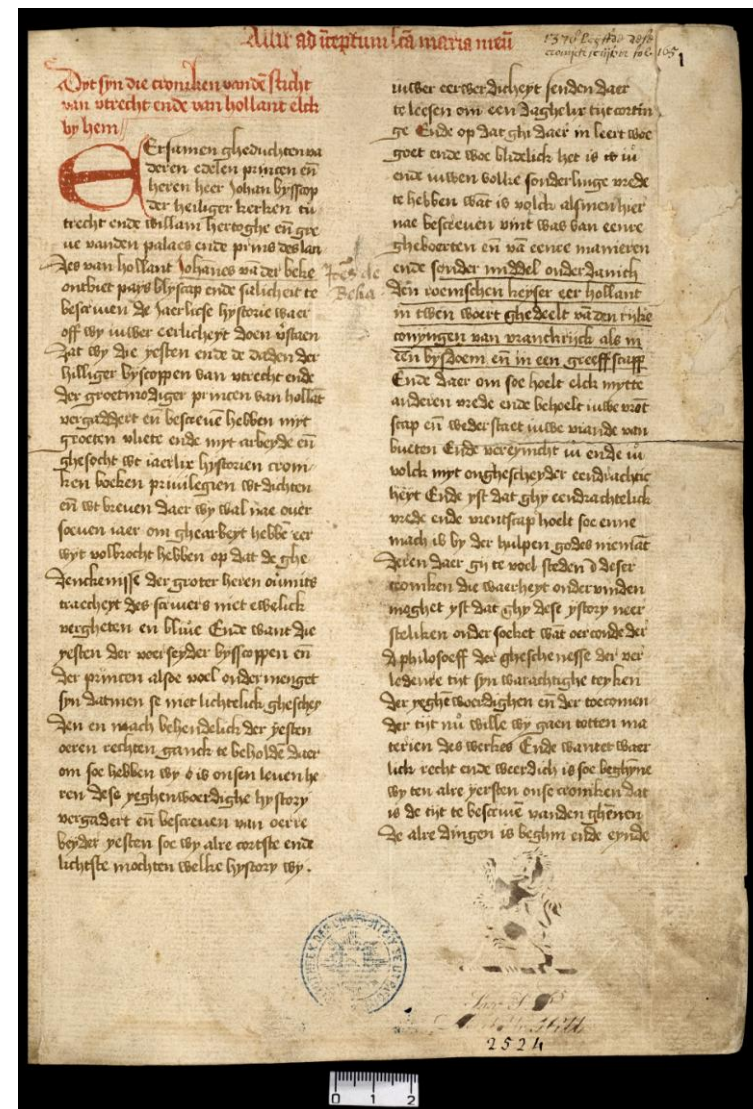 Assit ad inceptum sca maria meu
1376 leefde dese
cronijck scrijver fol. 165
1
Dyt syn die croniken vanden sticht
van utrecht ende van hollant elck
by hem
Ersamen gheduchten va
deren edelen princen en
heren heer Johan bysscop
der heiliger kerken tu
trecht ende willam hertoghe en gre
ve vanden palaes ende prins des lan
des van hollant Johanes va der beke
ontbiet pays blyscap ende salicheit te
bescriven de Jaerlicse hystorie waer
off wy uwer eerlicheyt doen vstaen
dat wy die yesten ende de daden der
hilliger byscoppen van utrecht ende
der groetmodiger princen van hollat
vergaddert en bescreve hebben myt
groeten vliete ende myt arbeyde en
ghesocht wt iaerlix hystorien croni
ken boeken privilegien wt dichten
en wt breven daer wy wal nae over
soeven iaer om ghearbeyt hebbe eer
wyt volbrocht hebben op dat de ghe
denckenisse der groter heren ovmits
traecheyt des scrivers niet ewelick
vergheten en blive Ende want die
yesten der voerseyder bysscoppen en
der princen alsoe voel ondermenget
syn datmen se niet lichtelick ghescheg
den en mach behendelick der yesten
oeren rechten ganck te beholde daer
om soe hebben wy o is onsen leven he
ren dese yeghenwoerdighe hystory
vergadert en bescreven van oerre
beyder yesten soe wy alre cortste ende
lichtste mochten welke hystory wy .
Johes de
Beka
uwer eerwerdicheyt senden daer
te leesen om een daghelix tijt cortin
ge Ende op dat ghi daer in leert woe
goet ende woe blidelick het is to iu
ende uwen volke sonderlinge vrede
te hebben wat is volck alsmen hier
nae bescreven vint was van eenre
gheboerten en va eenre manieren
ende sonder middel onderdanich
den roemschen keyser eer hollant
in twen woert ghedeelt va den rijke
conyngen van vranckrijck als in
een bysdoem en in een greeffscapp
Ende daer om soe hoelt elck mytte
anderen vrede ende behoelt iuwe vrot
scap en wederstaet iuwe viande van
bueten Ende vereynicht iu ende iu
volck myt onghescheyder eendrachtic
heyt Ende yst dat ghy eendrachtelick
vrede ende vrientscap hoelt soe enne
mach is by der hulpen godes niemat
deren daer gy te voel steden deser
croniken die waerheyt ondervinden
moghet yst dat ghy dese ystory neer
steliken ondersoeket wat oerconde der
philosoeff der gheschenesse der ver
ledenre tijt syn warachtighe teyken
der yeghewoerdighen en der toecomen
der tijt nu wille wy gaen totten ma
terien des werkes Ende wantet waer
lick recht ende weerdich is soe beghyne
wy ten alre yersten onse croniken dat
is de tijt te bescrive vanden ghenen
de alre dingen is beghin ende eynde
2524
0 1 2